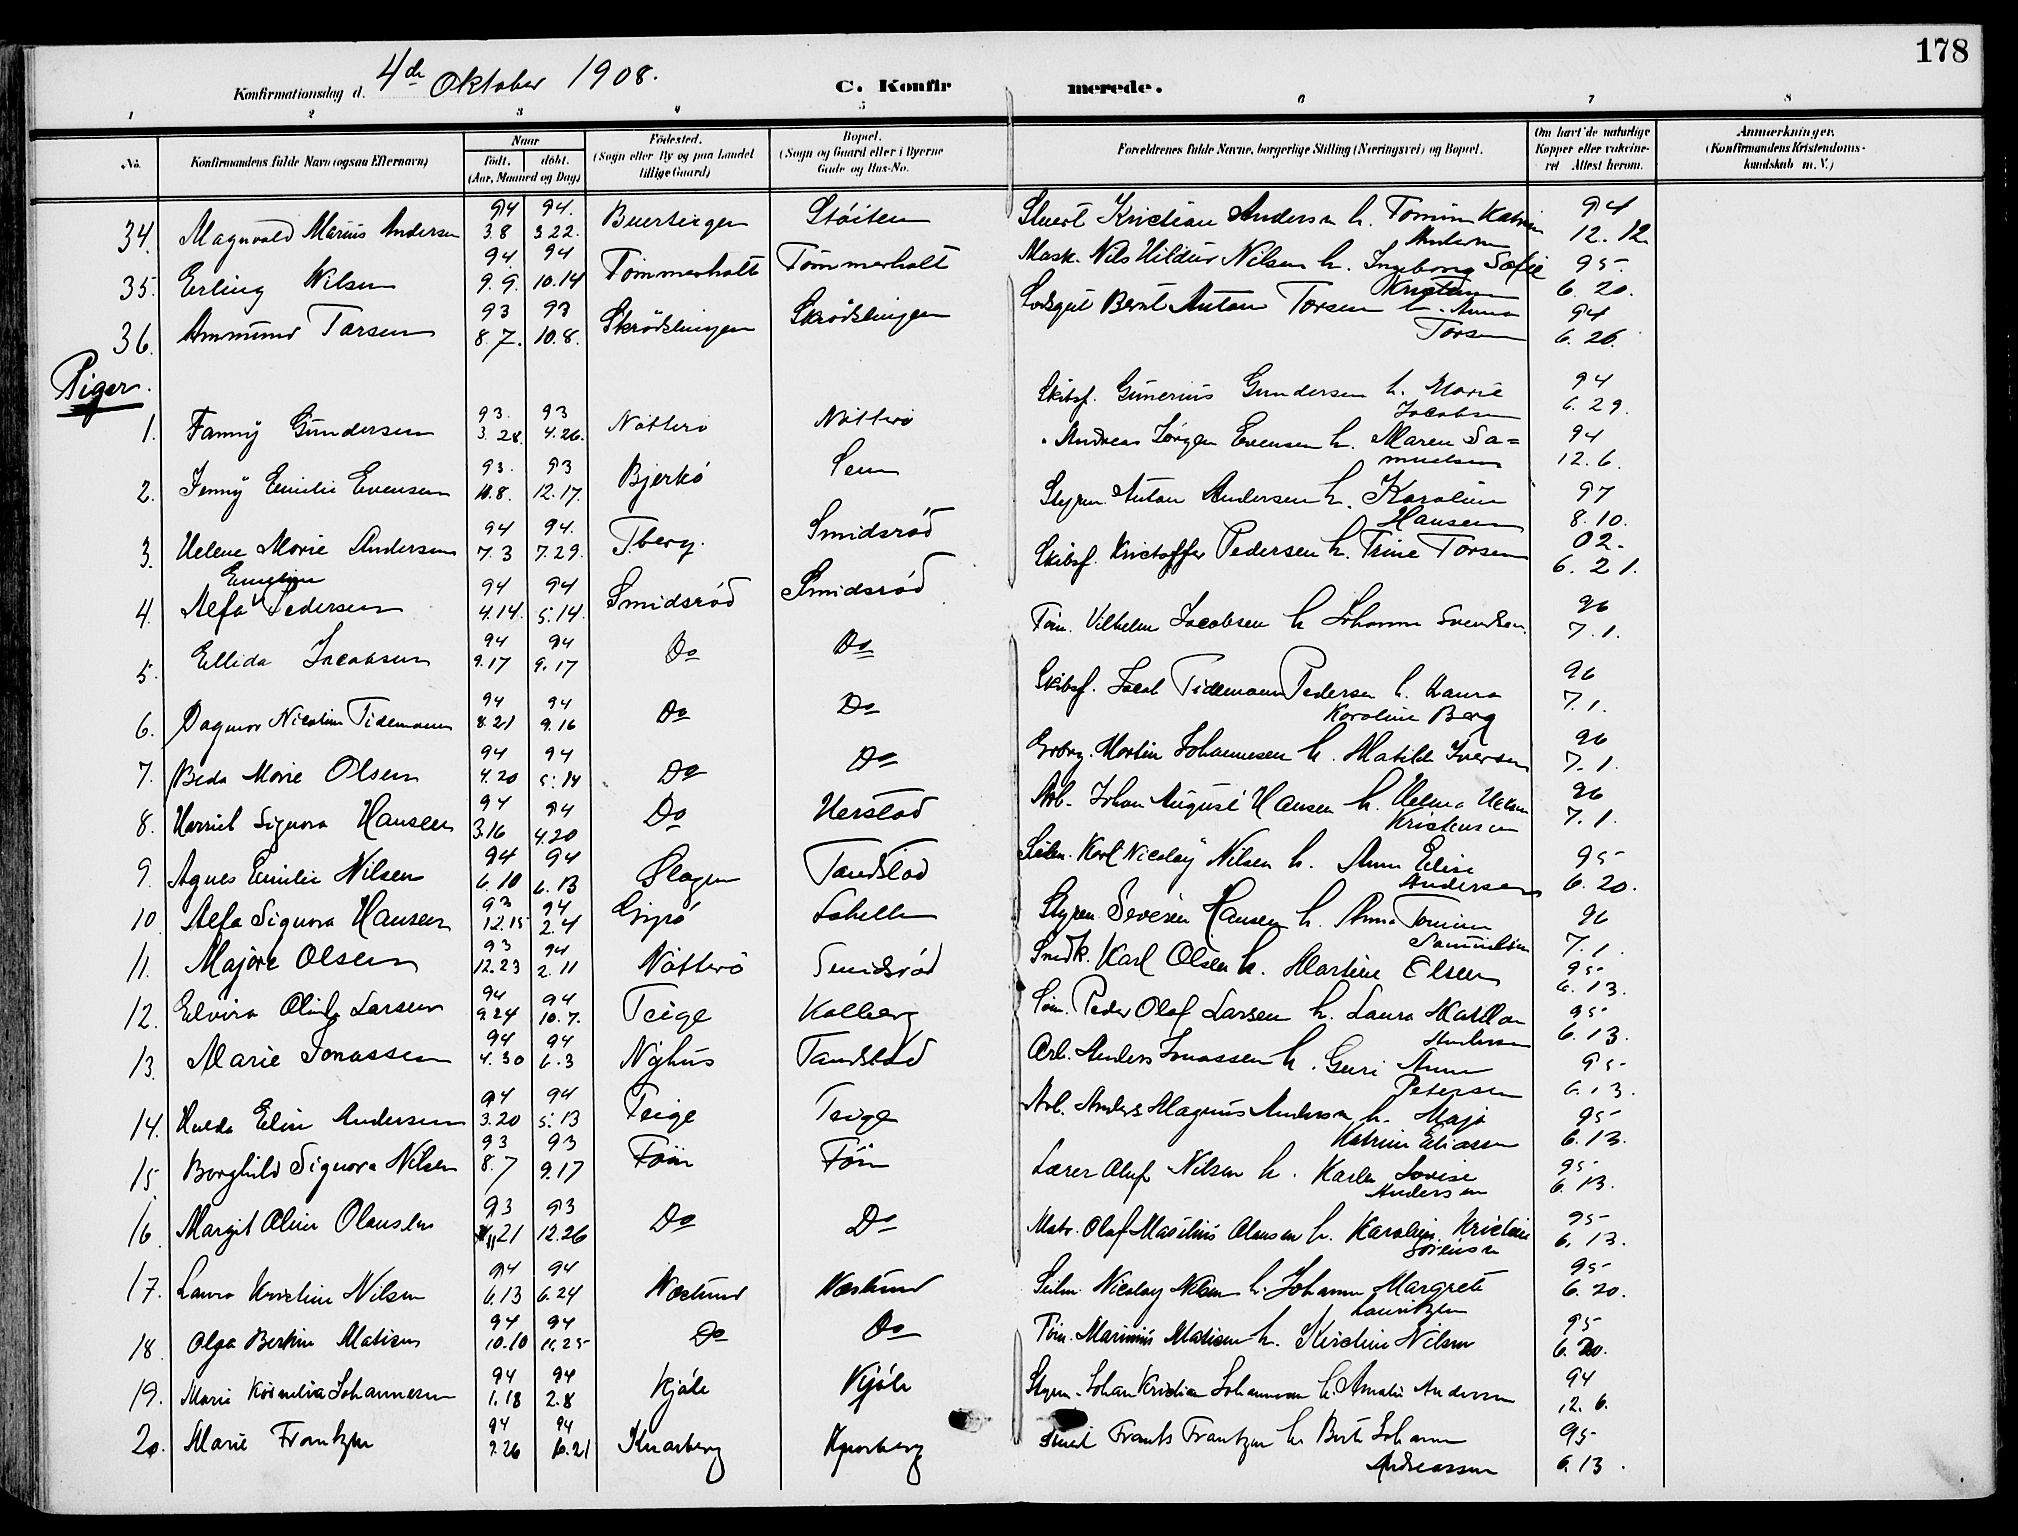 178
Konfirmationsdag d. 4de Oktober 1908.
C. Konfirmerede.
1 2 3 4 5 6 7 8
No. Konfirmandens fulde Navn (ogsaa Efternavn) Naar født. døbt. (Aar, Maaned og Dag) Fødested. (Sogn eller By og paa Landet tillige Gaard) Bopæl. (Sogn og Gaard eller i Byerne Gade og Hus-No. Forældrenes fulde Navne, borgerlige Stilling (Næringsvei) og Bopæl. Om havt de naturlige Kopper eller vakcineret Attest herom. Anmærkninger. (Konfirmandens Kristendomskundskab m. V.)
34. Magnvald Marius Andersen 94 3.8 94. 3 22. Buerstegen Støiten Kristian Andersen h. Tomine Katrin Andersen 94 12. 12.
35. Erling Nilsen 94 9. 9. 94 10.14 Tömmerholt Tömmerholt Mask. Nils Hildur Nilsen h. Ingeborg Sofie Kristensen 95. 6. 20.
36. Ammund Torsen 93 8.7. 93 10.8. Skrödslingen Skrödslingen Bernt Anton Torsen h. Anna Torsen 94 6. 26.
Piger.
1. Fanny Gundersen 93. 3. 28. 93 4.26. Nötterö Nötterö Skibsf. Gunerius Gundersen h. Marie Jacobsen 94 6. 29.
2. Jenny Emilie Evensen 93. 10.8. 93 12.17. Bjerkö Sem Andreas Jörgen Evensen h. Maren Samuelsen 94 12.6.
3. Helene Marie Andersen 94 7.3 94. 7.29. T.berg. Smidsröd Styrm. Anton Andersen h. Karoline Hansen 97 8.10.
4. Alfa Emeline Pedersen 94 4.14. 94 5.14. Smidsröd Smidsröd Skibsf. Kristoffer Pedersen h. Trine Torsen 02. 6. 21.
5. Ellida Jacobsen 94 9.17 94 9.17 Do Do Töm. Vilhelm Jacobsen h Johanne Svendsen. 96 7.1.
6. Dagmar Nicoline Tidemann 94 8.21 94 9.16 Do Do Skibsf. Jacob Tidemann Pedersen h. Laura Karoline Berg 96 7.1.
7. Beda Marie Olsen 94 4.20 94 5.14 Do Do Morten Johannesen h. Matilde Iversen 96 7.1.
8. Harriet Signora Hansen 94 3.16 94 4.20 Do Herstad Arb. Johan August Hansen h. Helma Kristensen 96 7.1.
9. Agnes Emilie Nilsen 94 6.10 94 6.13 Slagen Tandstad Karl Nicolay Nilsen h. Anna Elise Andersen 95 6. 20.
10. Alfa Signora Hansen 93 12.15 94 2.4 Gipö Labella Styrm. Severin Hansen h. Anna Tomine Samuelsen 96 7.1.
11. Majöre Olsen 93 12.23 94 2.11 Nötterö Smidsröd Snedk. Karl Olsen h. Martine Olsen 95 6.13.
12. Elvira Olinda Larsen 94 9.24 94 10.7. Teige Kolberg Töm. Peder Olaf Larsen h. Laura Matilda Andersen 95 6.13.
13. Marie Jonassen 94 4.30 94 6.3 Nyhus Tandstad Arb. Anders Jonassen h. Guri Anna Petersen 95 6.13.
14. Hulda Elise Andersen 94 3.20 94 5.13 Teige Teige Arb. Anders Magnus Andersen h. Maja Katrine Eliassen 95 6.13.
15 Borghild Signora Nilsen 93 8.7 93 9.17 Föin Föin Lærer Oluf Nilsen h. Karla Lovise Andersen 95 6.13.
16. Margit Oline Olausen 93 11 21 93 12.26 Do Do Matr. Olaf Masilius Olausen h. Karoline Kristine Sörensen 95 6.13.
17. Laura Kristine Nilsen 94 6.13 94 6.24 Næstund Næstund Nicolay Nilsen h. Johanne Margrete Lauritzen 95 6.20.
18. Olga Bertine Matisen 94 10.10 94 11.25 Do Do Töm. Marinius Matisen h. Kirstine Nilsen 95 6.20.
19. Marie Kornelia Johannesen 94 1.18 94 2.8 Kjöle Kjöle Styrm. Johan Kristian Johannesen h. Amalie Andersen 94 12.6.
20. Marie Frantzen 94 9.26 94 10.21 Knarberg Knarberg Smed Frants Frantzen h. Berte Johanne Andreassen 95 6.13.